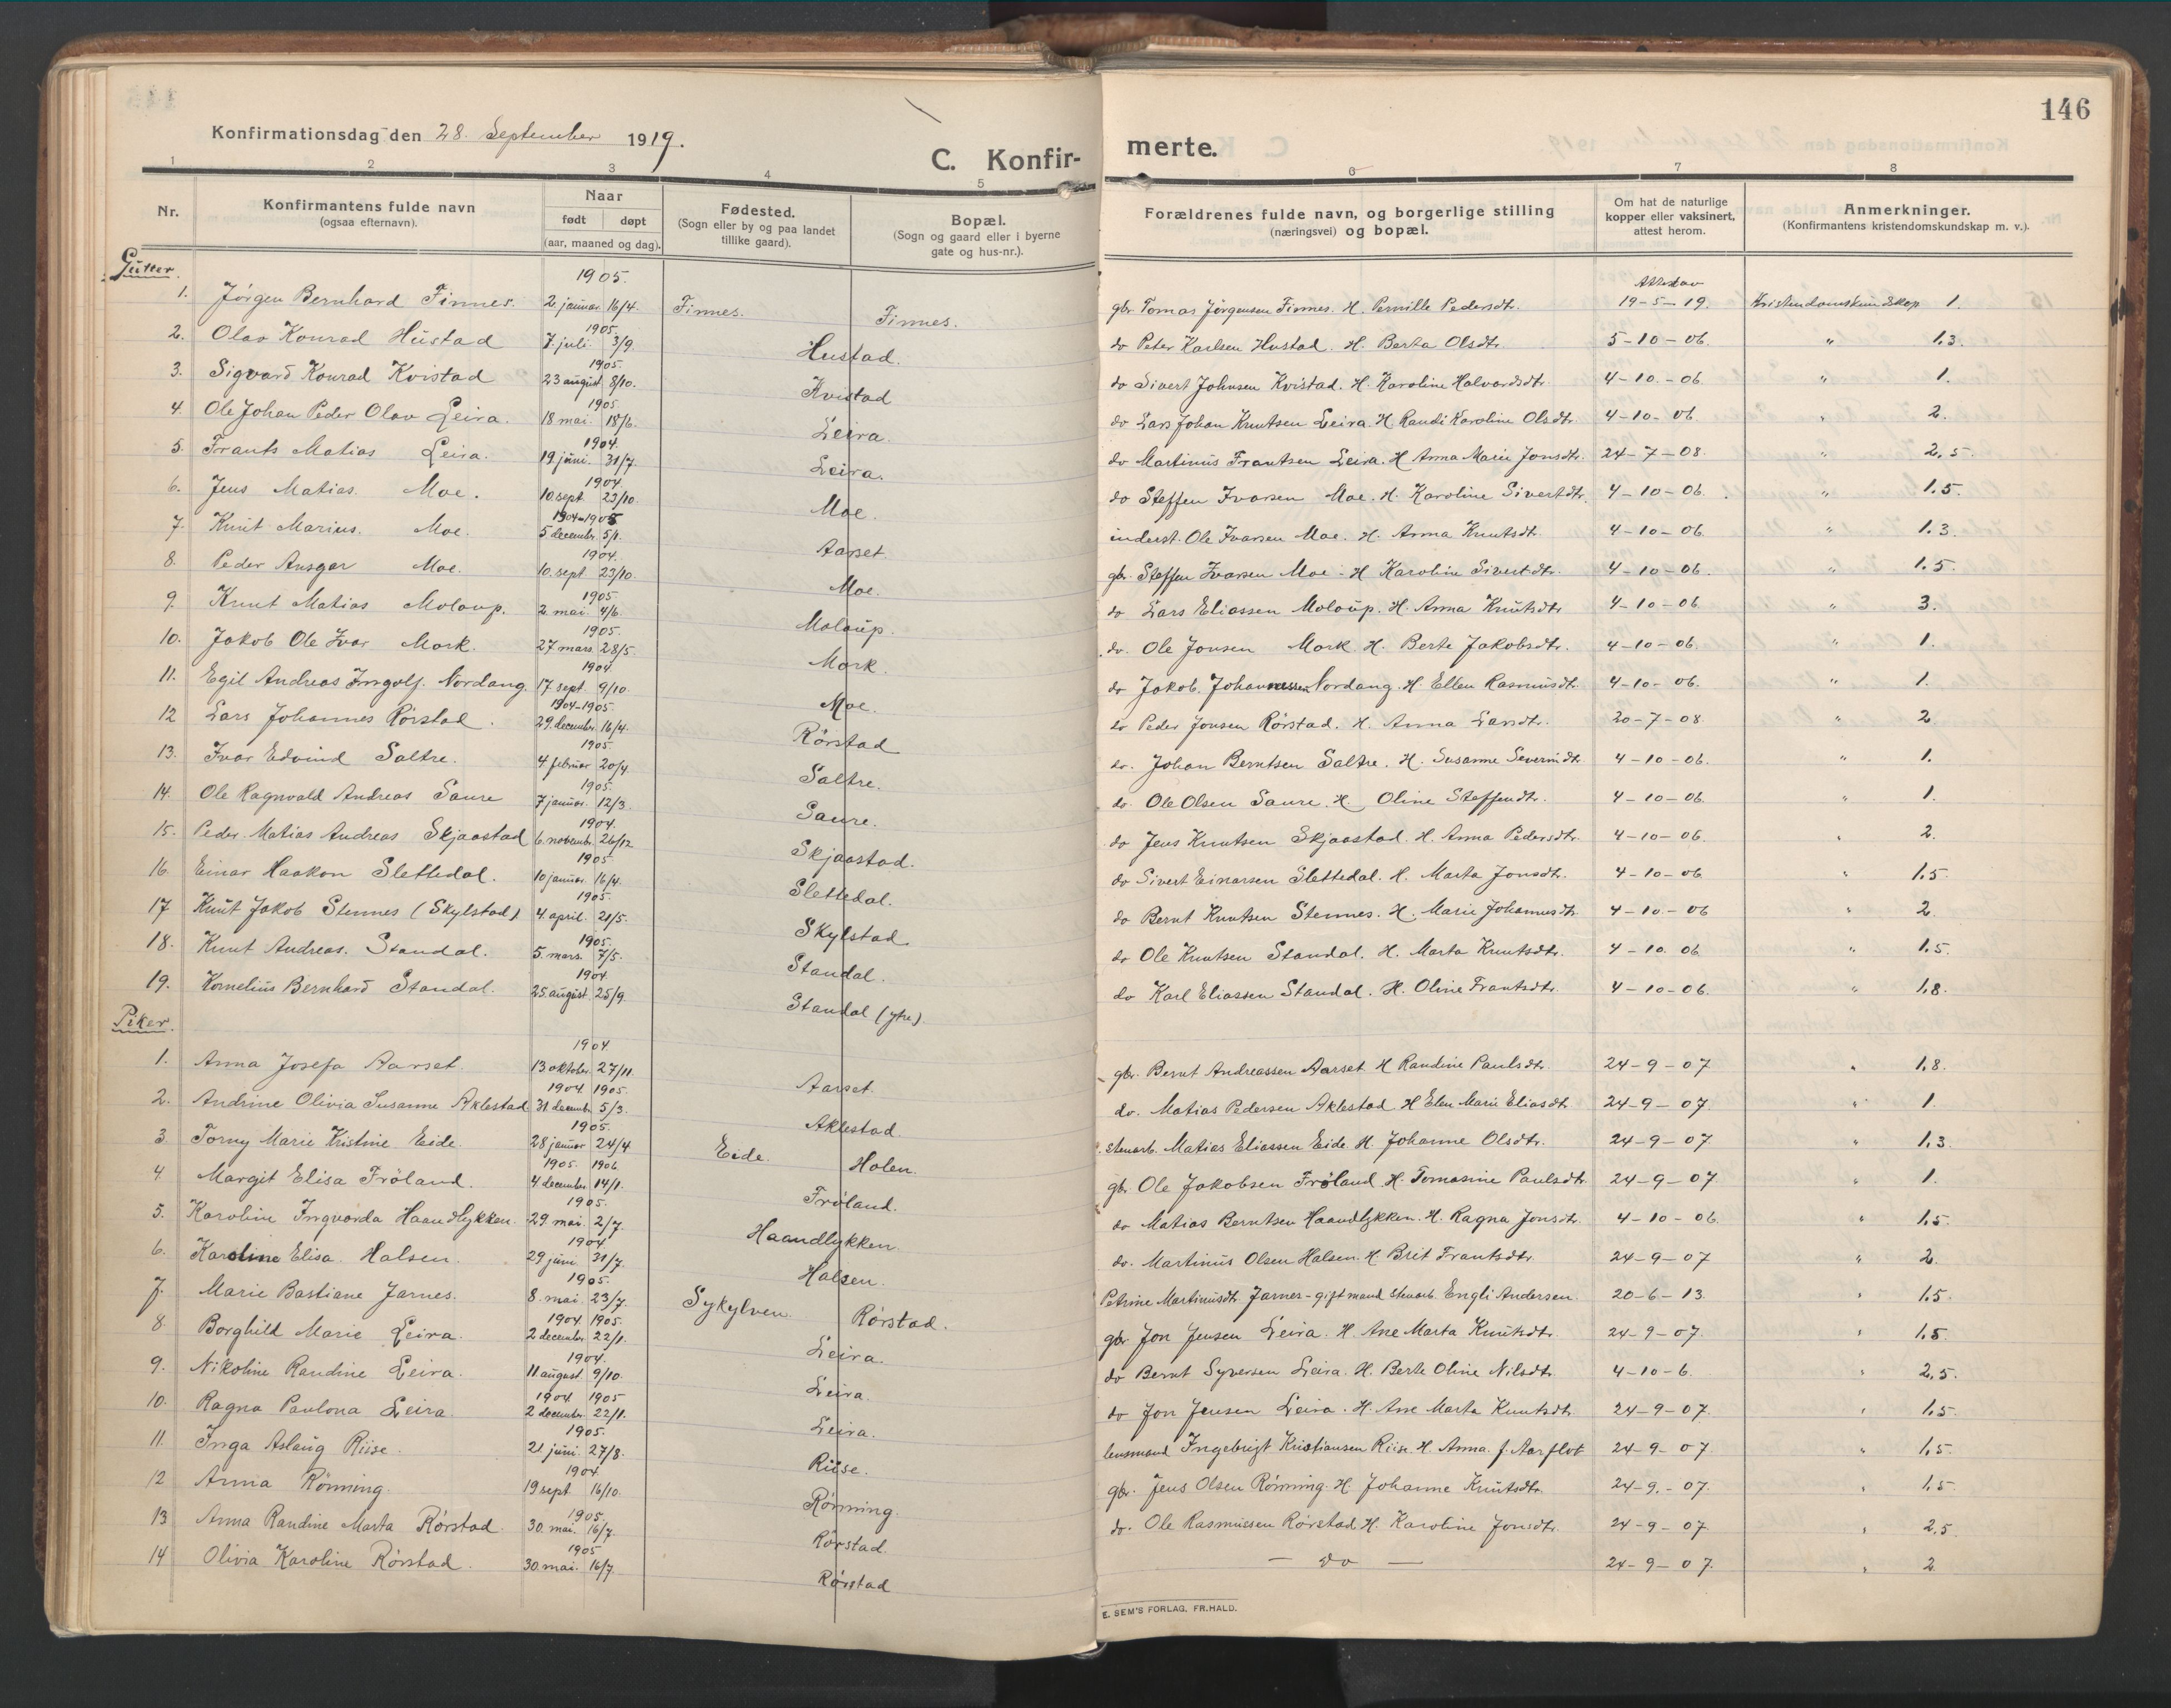 146
Konfirmationsdag den 28. September 1919.
C. Konfir-
merte.
1 2 3 4 5 6 7 8
Nr.
Konfirmantens fulde navn
(ogsaa efternavn).
Naar
født døpt
(aar, maaned og dag).
Fødested.
(Sogn eller by og paa landet
tillike gaard).
Bopæl.
(Sogn og gaard eller i byerne
gate og hus-nr.).
Forældrenes fulde navn, og borgerlige stilling
(næringsvei) og bopæl.
Om hat de naturlige
kopper eller vaksinert,
attest herom.
Anmerkninger.
(Konfirmantens kristendomskundskap m. v.).
Gutter.
1905.
1. Jørgen Bernhard Finnes. 2. januar 16/4. Finnes. Finnes. gbr. Tomas Jørgensen Finnes. H. Pernille Pedersdtr. 19-5-19. Kristendomskundskap 1.
1905.
2. Olav Konrad Hustad 7. juli. 3/9. Hustad. do Peter Karlsen Hustad. H. Berta Olsdtr. 5-10-06. " 1.3.
1905.
3. Sigvard Konrad Kvistad 23 august 8/10. Kvistad do Sivert Johnsen Kvistad. H. Karoline Halvardsdtr. 4-10-06. " 1.
1905.
4. Ole Johan Peder Olav Leira. 18 mai. 18/6. Leira. do Lars Johan Knutsen Leira. H. Randi Karoline Olsdtr. 4-10-06. " 2.
1904.
5. Frants Matias Leira. 19 juni. 31/7. Leira. do Martinus Frantsen Leira. H. Anna Marie Jonsdtr. 24-7-08. " 2,5.
1904.
6. Jens Matias. Moe. 10. sept. 23/10. Moe. do Steffen Ivarsen Moe. H. Karoline Sivertdtr. 4-10-06. " 1.5.
1904-1905
7. Knut Marius. Moe. 5 december. 5/1. Aarset. inderst. Ole Ivarsen Moe. H. Anna Knutsdt. 4-10-06. " 1.3.
1904.
8. Peder Ansgar Moe. 10. sept 23/10. Moe. gbr. Steffen Ivarsen Moe - H Karoline Sivertdtr. 4-10-06. " 1.5.
1905
9. Knut Matias Moloup. 2. mai. 4/6. Moloup. do Lars Eliassen Moloup. H. Anna Knutsdtr 4-10-06 " 3.
1905.
10. Jakob Ole Ivar Mork. 27 mars. 28/5. Mork. do. Ole Jonsen Mork H. Berte Jakobsdtr. 4-10-06. " 1.
1904
11. Egil Andreas Ingolf. Nordang. 17. sept. 9/10. Moe. do Jakob. Johannessen Nordang. H. Ellen Rasmusdtr. 4-10-06. " 1.
1904-1905.
12 Lars Johannes Rørstad. 29. december. 16/4. Rørstad do Peder Jonsen Rørstad. H. Anna Larsdtr. 20-7-08. " 2
1905.
13. Ivar Edvind Saltre. 4. februar 20/4. Saltre. do. Johan Berntsen Saltre. H. Susanne Severindtr. 4-10-06. " 1.
1905.
14. Ole Ragnvald Andreas Saure 7 januar. 12/3. Saure. do Ole Olsen Saure. H. Oline Steffendtr. 4-10-06. " 1.
1904.
15. Peder. Matias Andreas Skjaastad 6. november. 26/12 Skjaastad. do Jens Knutsen Skjaastad. H. Anna Pedersdtr. 4-10-06. " 2.
1905
16. Einar Haakon Slettedal. 10 januar. 16/4. Slettedal. do Sivert Einarsen Slettedal. H. Marta Jonsdtr. 4-10-06 " 1.5.
1905.
17 Knut Jakob Stennes (Skylstad) 4. april. 21/5. Skylstad. do Bernt Knutsen Stennes. H. Marie Johannesdtr. 4-10-06 " 2.
1905.
18. Knut Andreas. Standal. 5. mars. 7/5. Standal. do Ole Knutsen Standal. H. Marta Knutsdtr. 4-10.06. " 1.5.
1904.
19. Kornelius Bernhard Standal. 25. august. 25/9. Standal (ytre). do Karl Eliassen Standal. H. Oline Frantsdtr. 4-10-06. " 1,8.
Piker.
1904.
1. Anna Josefa Aarset. 13 oktober. 27/11. Aarset. gbr. Bernt Andreassen Aarset H Randine Paulsdtr. 24-9-07 " 1,8.
1904. 1905.
2. Andrine Olivia Susanne Aklestad 31. decemb. 5/3. Aklestad. do. Matias Pedersen Aklestad. H Elen Marie Eliasdtr. 24-9-07. " 1.
1905.
3. Torny Marie Kristine Eide. 28 januar 24/4 Eide. Holen. stenarb. Matias Eliassen Eide. H. Johanne Olsdtr. 24-9-07. " 1,3
1905. 1906.
4. Margit Elisa Frøland. 4. december. 14/1. Frøland. gbr Ole Jakobsen Frøland. H. Tomasine Paulsdtr. 24-9-07. " 1.
1905.
5. Karoline Ingvarda Haandlykken. 29. mai. 2/7. Haandlykken. do Matias Berntsen Haandlykken. H. Ragna Jonsdtr. 4-10-06. " 1,5.
1904
6. Karoline Elisa. Halsen. 29 juni. 31/7. Halsen. do. Martinus Olsen Halsen. H. Brit Frantsdtr. 24-9-07 " 2.
1905.
7. Marie Bastiane Jarnes. 8. mai. 23/7. Sykylven. Rørstad. Petrine Martinusdtr. Jarnes - gift mand stenarb. Engli Andersen. 20-6-13. " 1.5.
1904. 1905.
8. Borghild Marie Leira. 2 december. 22/1. Leira. gbr Jon Jensen Leira. H. Ane Marta Knutsdtr. 24-9-07. " 1,5.
1904.
9. Nikoline Randine Leira. 11 august. 9/10. Leira. do Bernt Syversen Leira. H. Berte Oline Nilsdtr. 4-10-6. " 2,5.
1904. 1905
10. Ragna Paulona Leira. 2 december. 22/1. Leira. do Jon Jensen Leira. H. Ane Marta Knutsdtr. 24-9-07. " 1,5.
1905.
11. Inga Aslaug Riise. 21. juni. 27/8. Riise. lensmand Ingebrigt Kristiansen Riise. H. Anna. f. Aarflot 24-9-07. " 1,5
1904
12 Anna Rönning. 19 sept. 16/10. Rönning. gbr. Jens Olsen Rönning. H. Johanne Knutsdtr. 24-9.-07. " 1,5
1905.
13 Anna Randine Marta Rørstad. 30. mai. 16/7. Rørstad. do. Ole Rasmussen Rørstad H. Karoline Jonsdtr. 24-9-07 " 2,5.
1905
14 Olivia Karoline Rørstad. 30 mai. 16/7. Rørstad — do — 24-9-07. " 2
E. SEM'S FORLAG, FR.HALD.